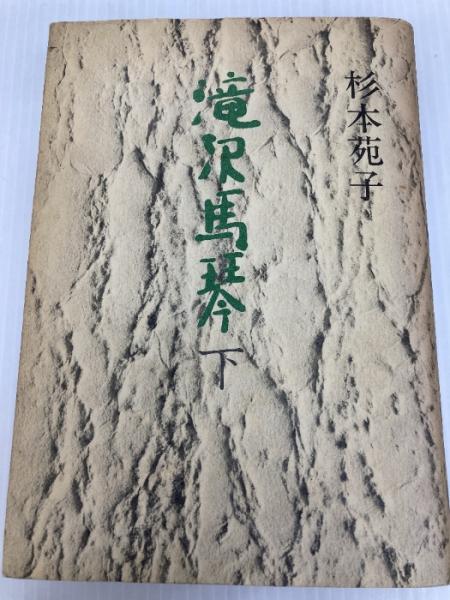 杉本苑子
滝沢馬琴
下